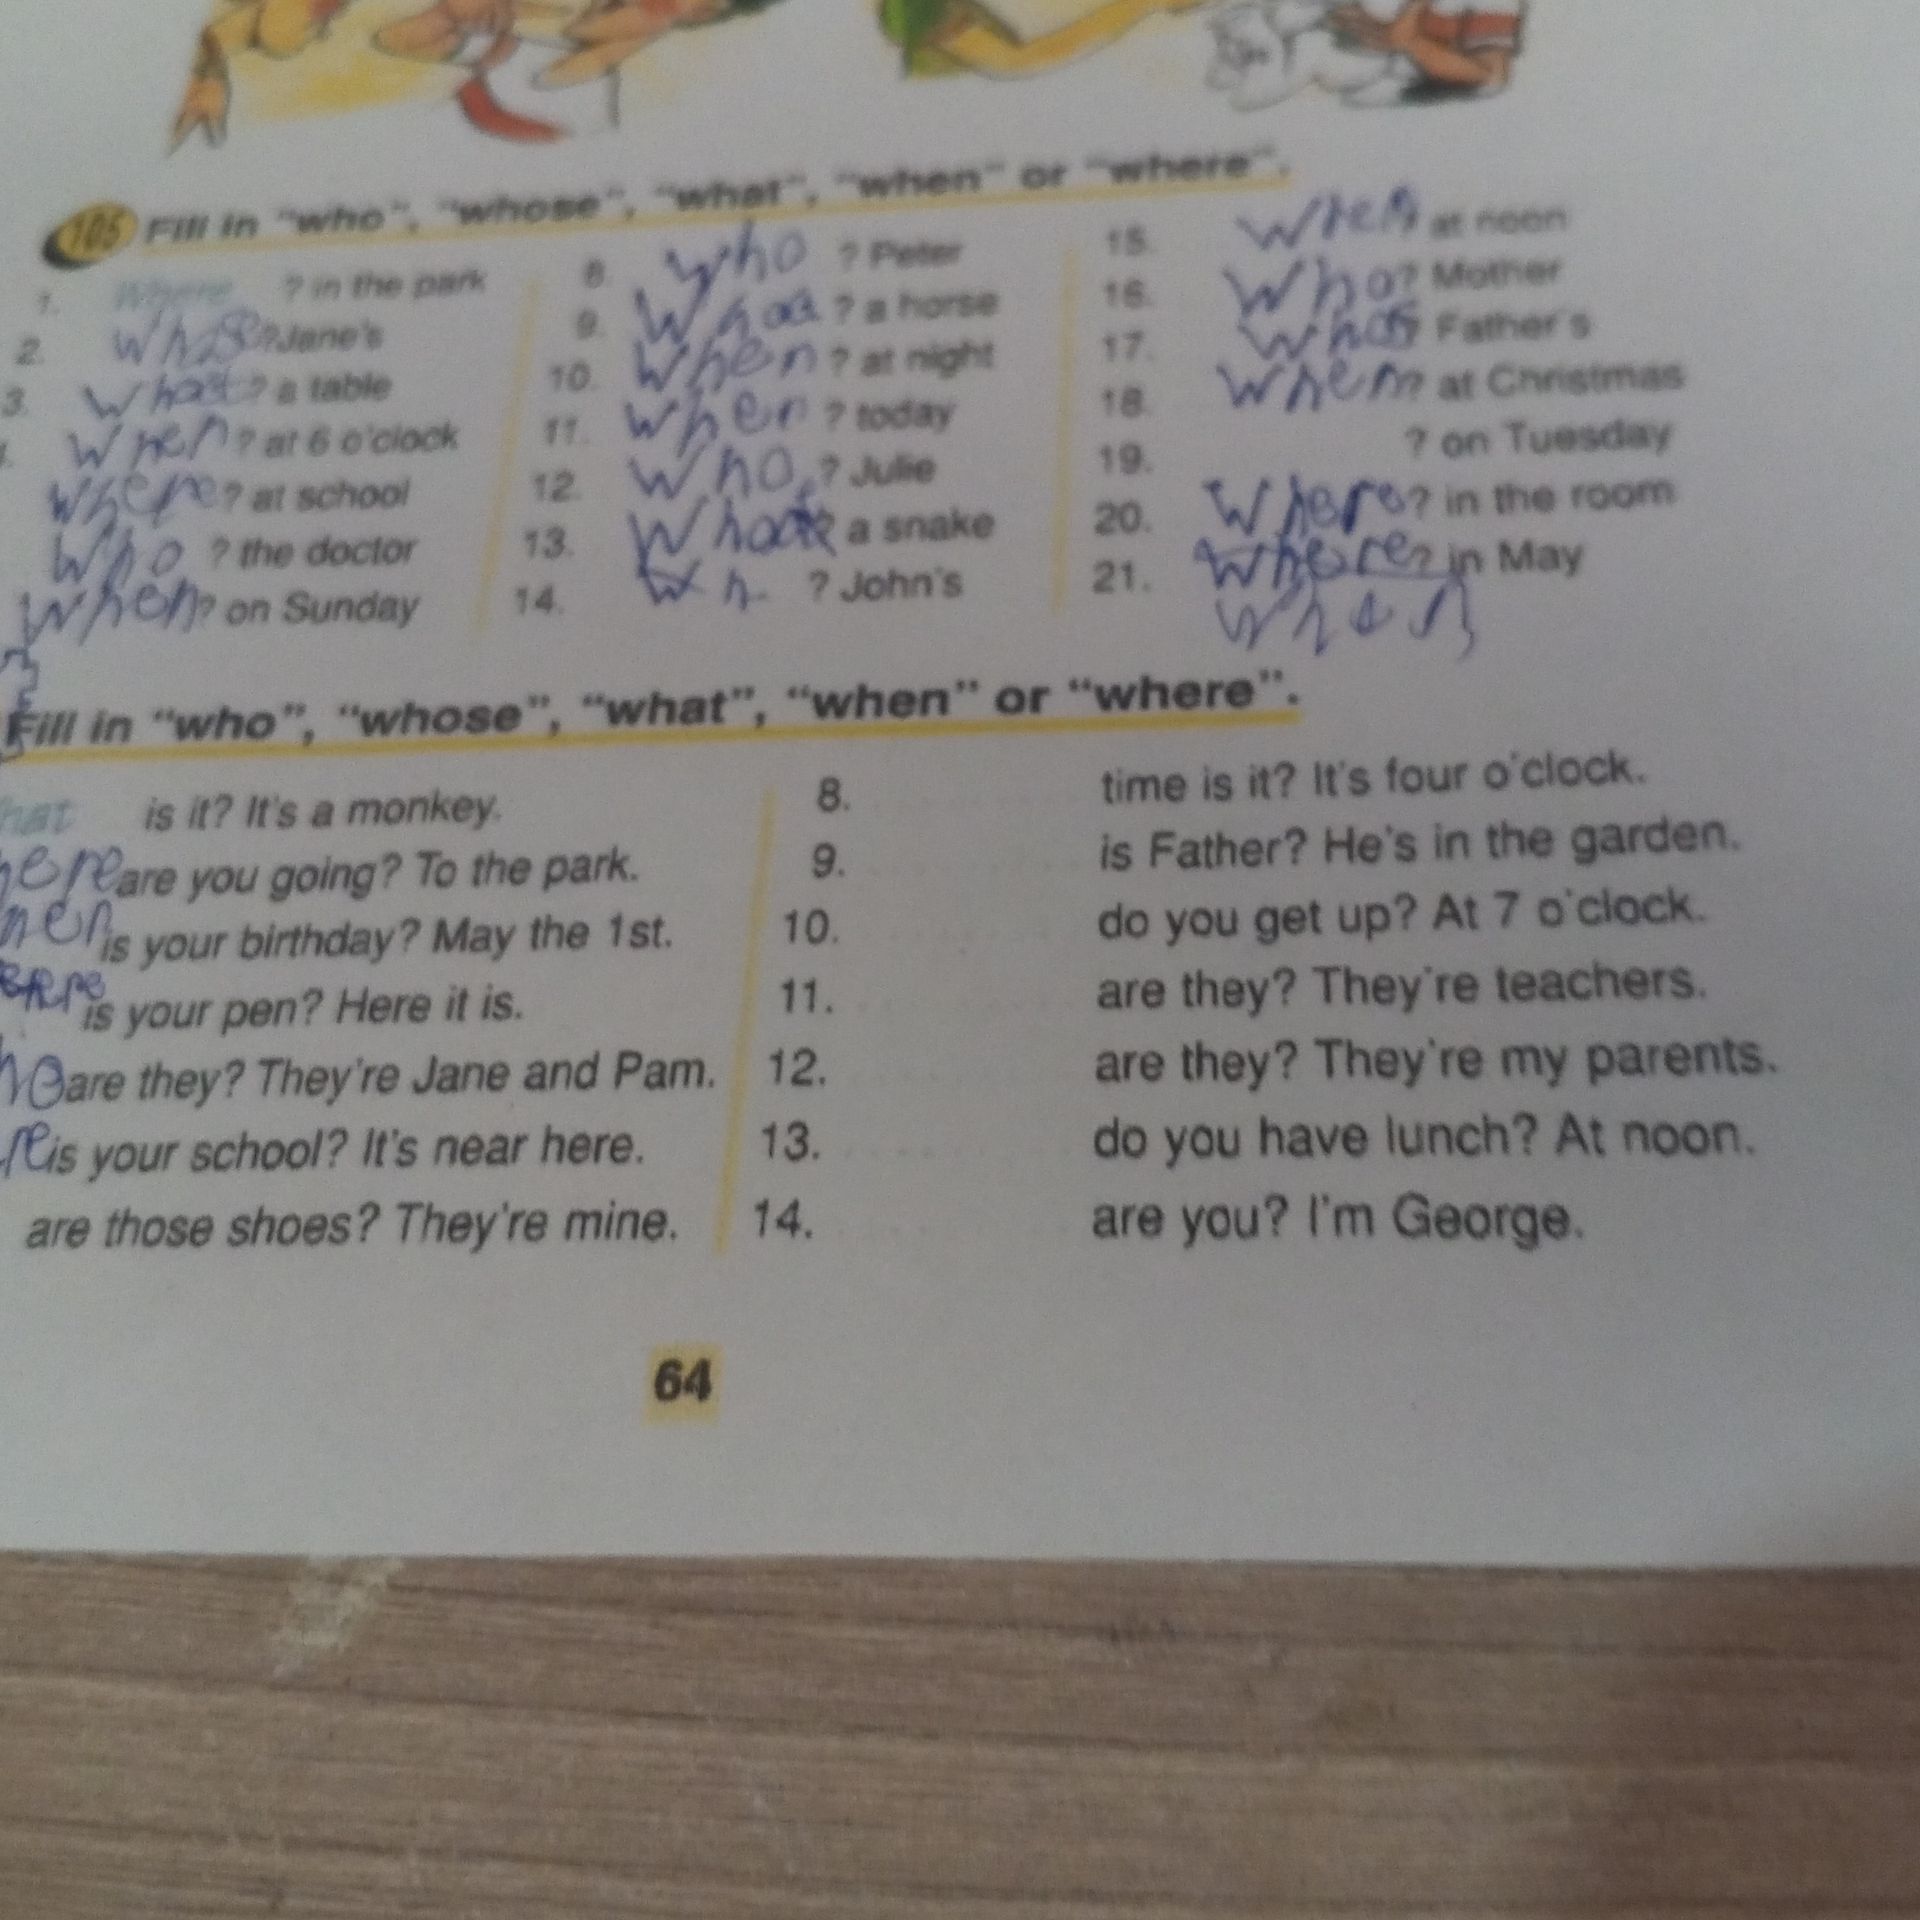 105 Fill in "who", "whose", "what", "when" or "where".
1. Where ? in the park
2. ? Jane's
3. What ? a table
When ? at 6 o'clock
Where ? at school
Who ? the doctor
When ? on Sunday
8. Who ? Peter
9. ? a horse
10. When ? at night
11. When ? today
12. Who ? Julie
13. ? a snake
14. Wh ? John's
15. When ? at noon
16. Who ? Mother
17. ? Father's
18. When ? at Christmas
19. ? on Tuesday
20. Where ? in the room
21. Where ? in May
When
Fill in "who", "whose", "what", "when" or "where".
hat is it? It's a monkey.
here are you going? To the park.
hen is your birthday? May the 1st.
is your pen? Here it is.
ho are they? They're Jane and Pam.
re is your school? It's near here.
are those shoes? They're mine.
8. time is it? It's four o'clock.
9. is Father? He's in the garden.
10. do you get up? At 7 o'clock.
11. are they? They're teachers.
12. are they? They're my parents.
13. do you have lunch? At noon.
14. are you? I'm George.
64